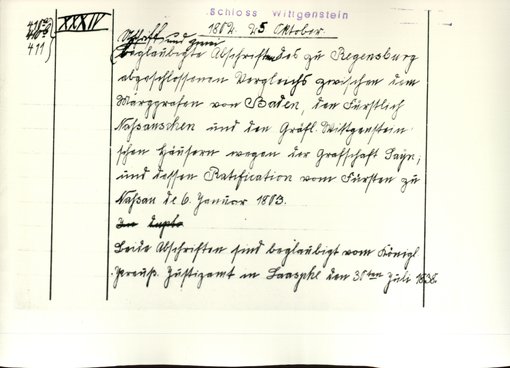 Schloss Wittgenstein
XXXIV
1802. 25 Oktober.
411
Beglaubigte Abschriften des zu Regensburg
abgeschlossenen Vergleichs zwischen dem
Marggrafen von Baden, den Fürstlich
Naßauschen und den Gräfl. Wittgenstein
schen Häusern wegen der Grafschaft Sayn;
und dessen Ratification vom Fürsten zu
Naßau de 6. Januar 1803.
Beide Abschriften sind beglaubigt vom Königl.
Preuß. Justizamt in Laasphe den 31ten Juli 1838.